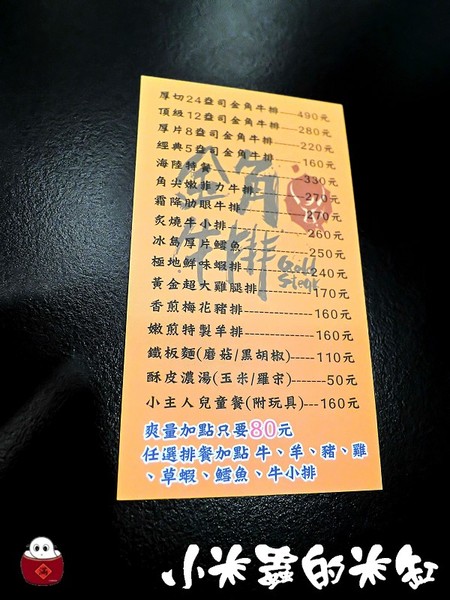 厚切24盎司金角牛排----490元
頂級12盎司金角牛排----280元
厚片8盎司金角牛排-----220元
經典5盎司金角牛排-----160元
海陸特餐-----330元
角尖嫩菲力牛排-----270元
霜降肋眼牛排-----270元
炙燒牛小排-----260元
冰島厚片鱈魚-----250元
極地鮮味蝦排-----240元
黃金超大雞腿排-----170元
香煎梅花豬排-----------160元
嫩煎特製羊排-------------160元
鐵板麵(磨菇/黑胡椒)-----110元
酥皮濃湯(玉米/羅宋)-------50元
小主人兒童餐(附玩具)---160元
爽量加點只要80元
任選排餐加點 牛、羊、豬、雞
、草蝦、鱈魚、牛小排
金角
牛排
Gold
Steak
小米蟲的米缸